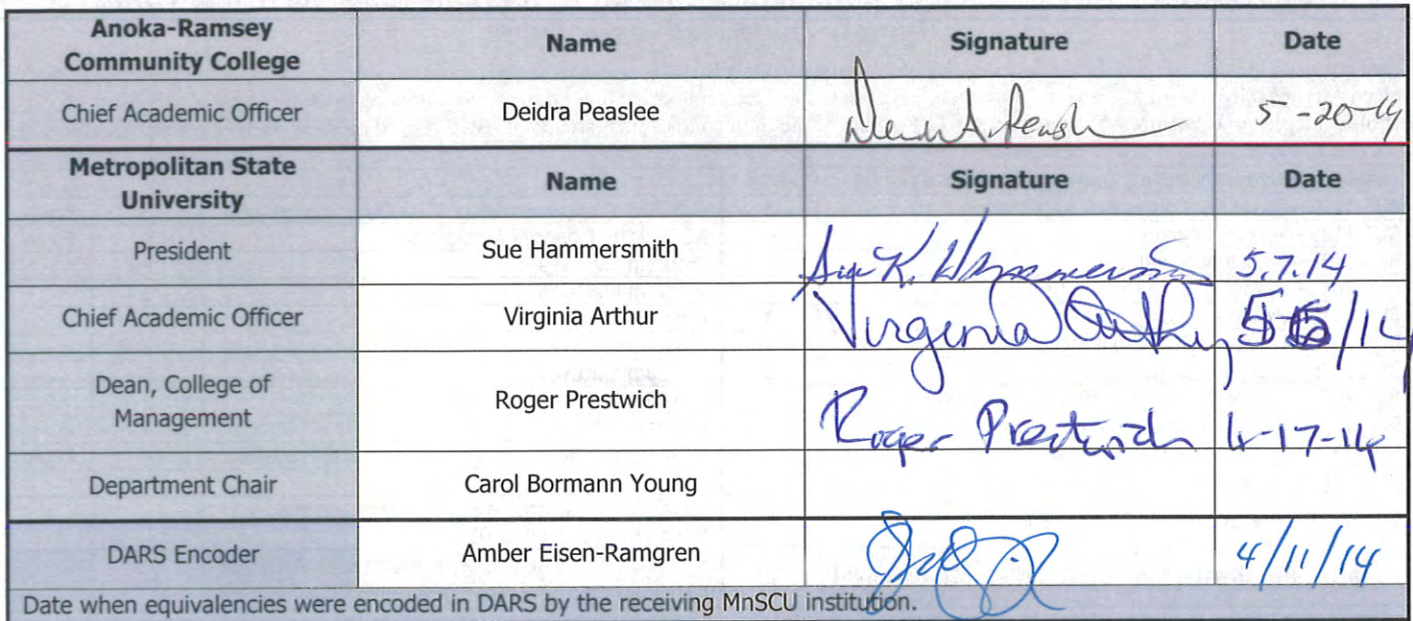 Anoka-Ramsey Community College Name Signature Date
Chief Academic Officer Deidra Peaslee 5-20-14
Metropolitan State University Name Signature Date
President Sue Hammersmith Sue K. Hammersmith 5.7.14
Chief Academic Officer Virginia Arthur Virginia Arthur
Dean, College of Management Roger Prestwich Roger Prestwich 4-17-14
Department Chair Carol Bormann Young
DARS Encoder Amber Eisen-Ramgren 4/11/14
Date when equivalencies were encoded in DARS by the receiving MnSCU institution.